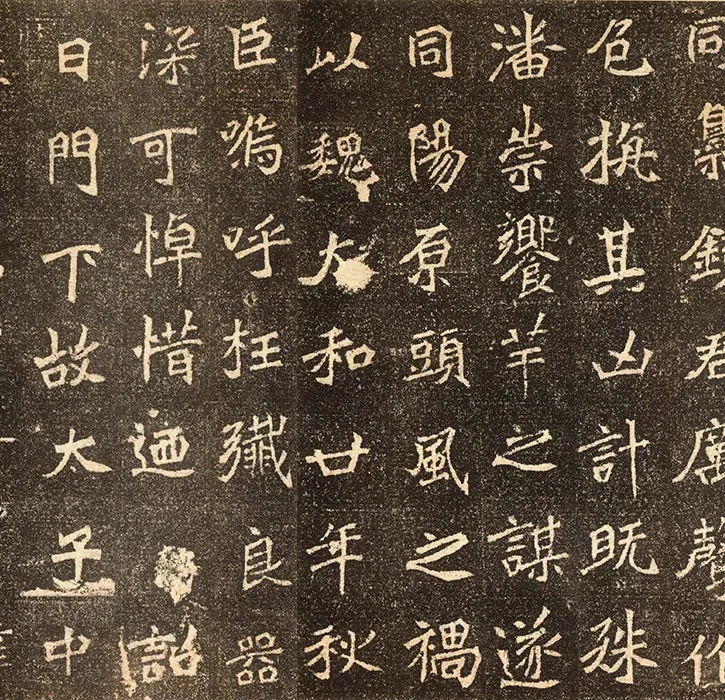 同梟鏡君厲聲作
色撫其凶計既殊
潘崇饗芊之謀遂
同陽原頭風之禍
以魏太和廿年秋
臣嗚呼枉殲良器
深可悼惜迺詔
曰門下故太子中